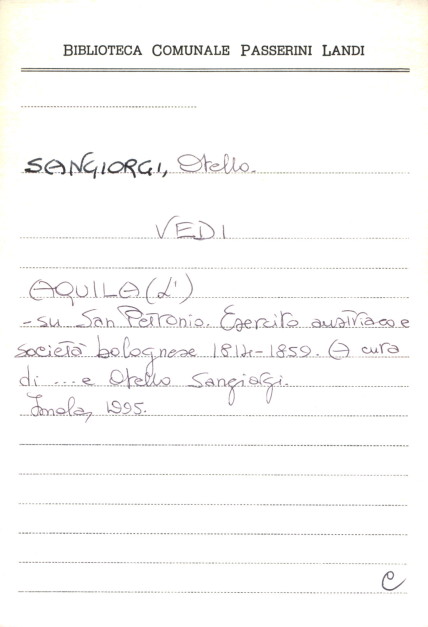 BIBLIOTECA COMUNALE PASSERINI LANDI
SANGIORGI, Otello.
VEDI
AQUILA (L')
- su San Petronio. Esercito austriaco e
società bolognese 1814-1859. A cura
di ... e Otello Sangiorgi.
Imola, 1995.
C